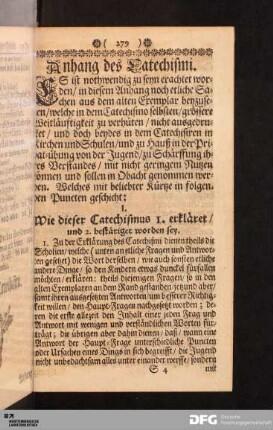 ( 279 )
Anhang des Catechismi.
ES ist nothwendig zu seyn erachtet wor-
den / in diesem Anhang noch etliche Sa-
chen aus dem alten Exemplar beyzuse-
tzen / welche in dem Catechismo selbsten / grössere
Weitläufftigkeit zu verhüten / nicht ausgedru-
cket / und doch beydes in dem Catechisiren in
Kirchen und Schulen / und zu Hauß in der Pri-
vat-übung von der Jugend / zu Schärffung ih-
res Verstandes / mit nicht geringem Nutzen
können und sollen in Obacht genommen wer-
den. Welches mit beliebter Kürtze in folgen-
den Puncten geschicht:
I.
Wie dieser Catechismus 1. erkläret /
und 2. bestätiget worden sey.
1. Zu der Erklärung des Catechismi dienen theils die
Scholien / welche (unten an etliche Fragen und Antwor-
ten gesetzt) die Wort derselben / wie auch sonsten etliche
andere Dinge / so den Kindern etwas dunckel fürfallen
möchten / erklären: theils diejenigen Fragen / so in den
alten Exemplaren an dem Rand gestanden / jetzund aber /
samt ihren ausgesetzten Antworten / um besserer Richtig-
keit willen / den Haupt-Fragen nachgesetzt worden:
den die erste allezeit den Inhalt einer jeden Frag und
Antwort mit wenigen und verständlichen Worten für-
trägt: die übrigen aber dahin dienen / daß / wann eine
Antwort der Haupt-Frage unterschiedliche Puncten
oder Ursachen eines Dings in sich begreifft / die Jugend
nicht unbedachtsam alles unter einander werffe / sondern
S 4 mit
WÜRTTEMBERGISCHE
LANDESBIBLIOTHEK
DFG Deutsche
Forschungsgemeinschaft